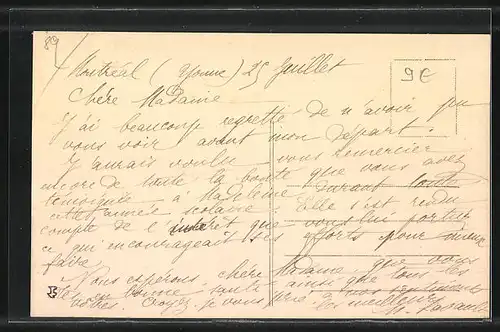 89
Montréal (Yonne) 25 Juillet
9 €
Chère Madame
J'ai beaucoup regretté de n'avoir pu
vous voir avant mon départ.
J'aurais voulu vous remercier
encore de toute la bonté que vous avez
témoignée à Madeleine durant toute
cette année scolaire. Elle s'est rendu
compte de l'intérêt que vous lui portiez
ce qui encourageait ses efforts pour mieux
faire.
Nous espérons, chère Madame, que vous
êtes en bonne santé ainsi que tous les
vôtres. Croyez je vous prie à nos sentiments
les meilleurs